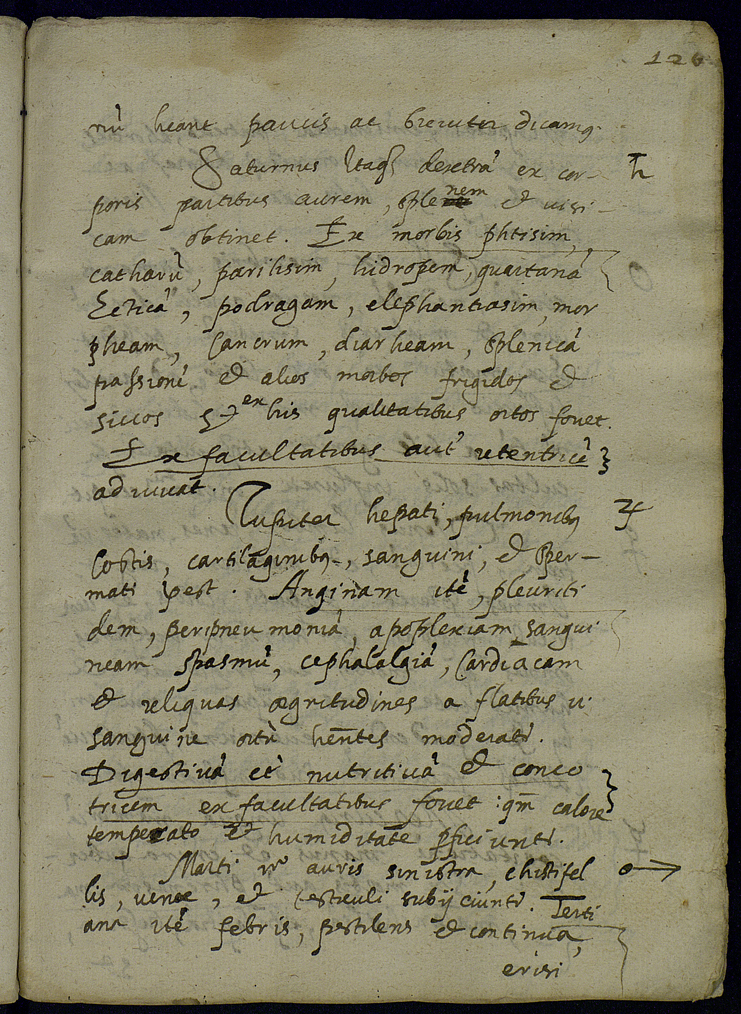 126
nũ heant paucis ac breuiter dicamꝯ.
Saturnus Itaqꝫ dextrã ex cor-
♄
poris partibus aurem, splenem et uisi-
cam obtinet. Ex morbis phtisim,
catharũ, parilisim, hidropem, quartanã
hecticã, podragam, elephantiasim, mor
pheam, Cancrum, diarheam, splenicã
passionẽ et alios morbos frigidos et
siccos ex his qualitatibus ortos fouet.
Ex facultatibus aut̃ retentricẽ
adiuuat.
Iupiter hepati, pulmonibꝯ
♃
Costis, cartilaginibꝯ, sanguini, et sper-
mati p̃est. Anginam itẽ, pleuriti
dem, peripneumoniã, apoplexiam sangui
neam spasmũ, cephalalgiã, Cardiacam
et reliquas ægritudines a flatibus u.
sanguine ortũ hẽntes moderat̃.
Digestiuã et̃ nutritiuã et conco
tricem ex facultatibus fouet: qm̃ calore
temperato et humiditate ꝑficiunt̃.
Marti u͂ auris sinistra, chistifel
♂
lis, venæ, et testiculi subijciunt̃. Terti
ana itẽ febris, pestilens et continua,
erisi